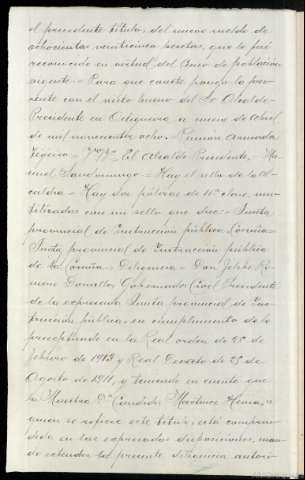 el precedente título, del nuevo sueldo de
ochocientas veinticinco pesetas, que le fué
reconocido en virtud del Censo de población
vigente. = Para que conste pongo la pre-
sente con el visto bueno del Sr Alcalde-
Presidente en Ortigueira a nueve de Abril
de mil novecientos ocho. = Ramón Armada
Teijeiro = Vº Bº = El Alcalde Presidente. = Ma-
nuel = Hay el sello de la Al-
caldía = Hay dos pólizas de 11ª clase inu-
tilizadas con un sello que dice: = Junta
provincial de Instrucción pública Coruña =
Junta provincial de Instrucción pública
de la Coruña = Diligencia = Don Felipe Ro-
mero Donallo Gobernador Civil Presidente
de la expresada Junta provincial de Ins-
trucción pública, en cumplimiento de lo
preceptuado en la Real orden de 28 de
febrero de 1913 y Real Decreto de 25 de
Agosto de 1911, y teniendo en cuenta que
la Maestra Dª Candida Martinez a
quien se refiere este título, está compren-
dida en las expresadas disposiciones, man-
do extender la presente diligencia autori-